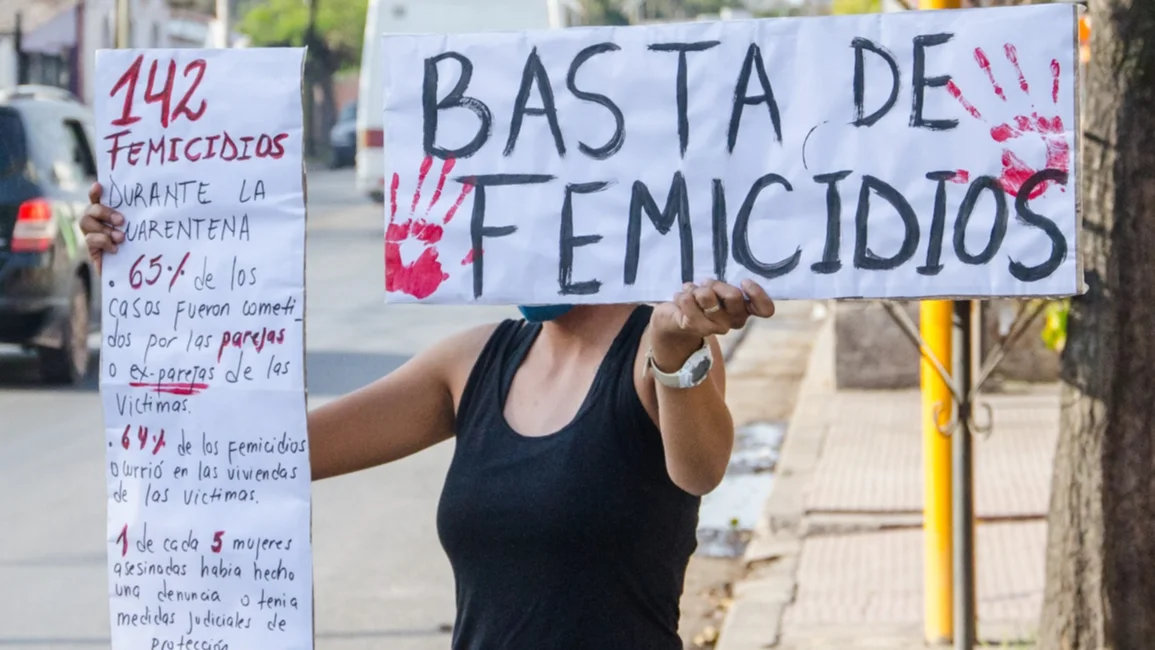 142
FEMICIDIOS
DURANTE LA
CUARENTENA
. 65% de los
casos fueron cometi-
dos por las parejas
o ex-parejas de las
víctimas.
. 64% de los femicidios
ocurrió en las viviendas
de las víctimas.
1 de cada 5 mujeres
asesinadas había hecho
una denuncia o tenía
medidas judiciales de
protección
BASTA DE
FEMICIDIOS